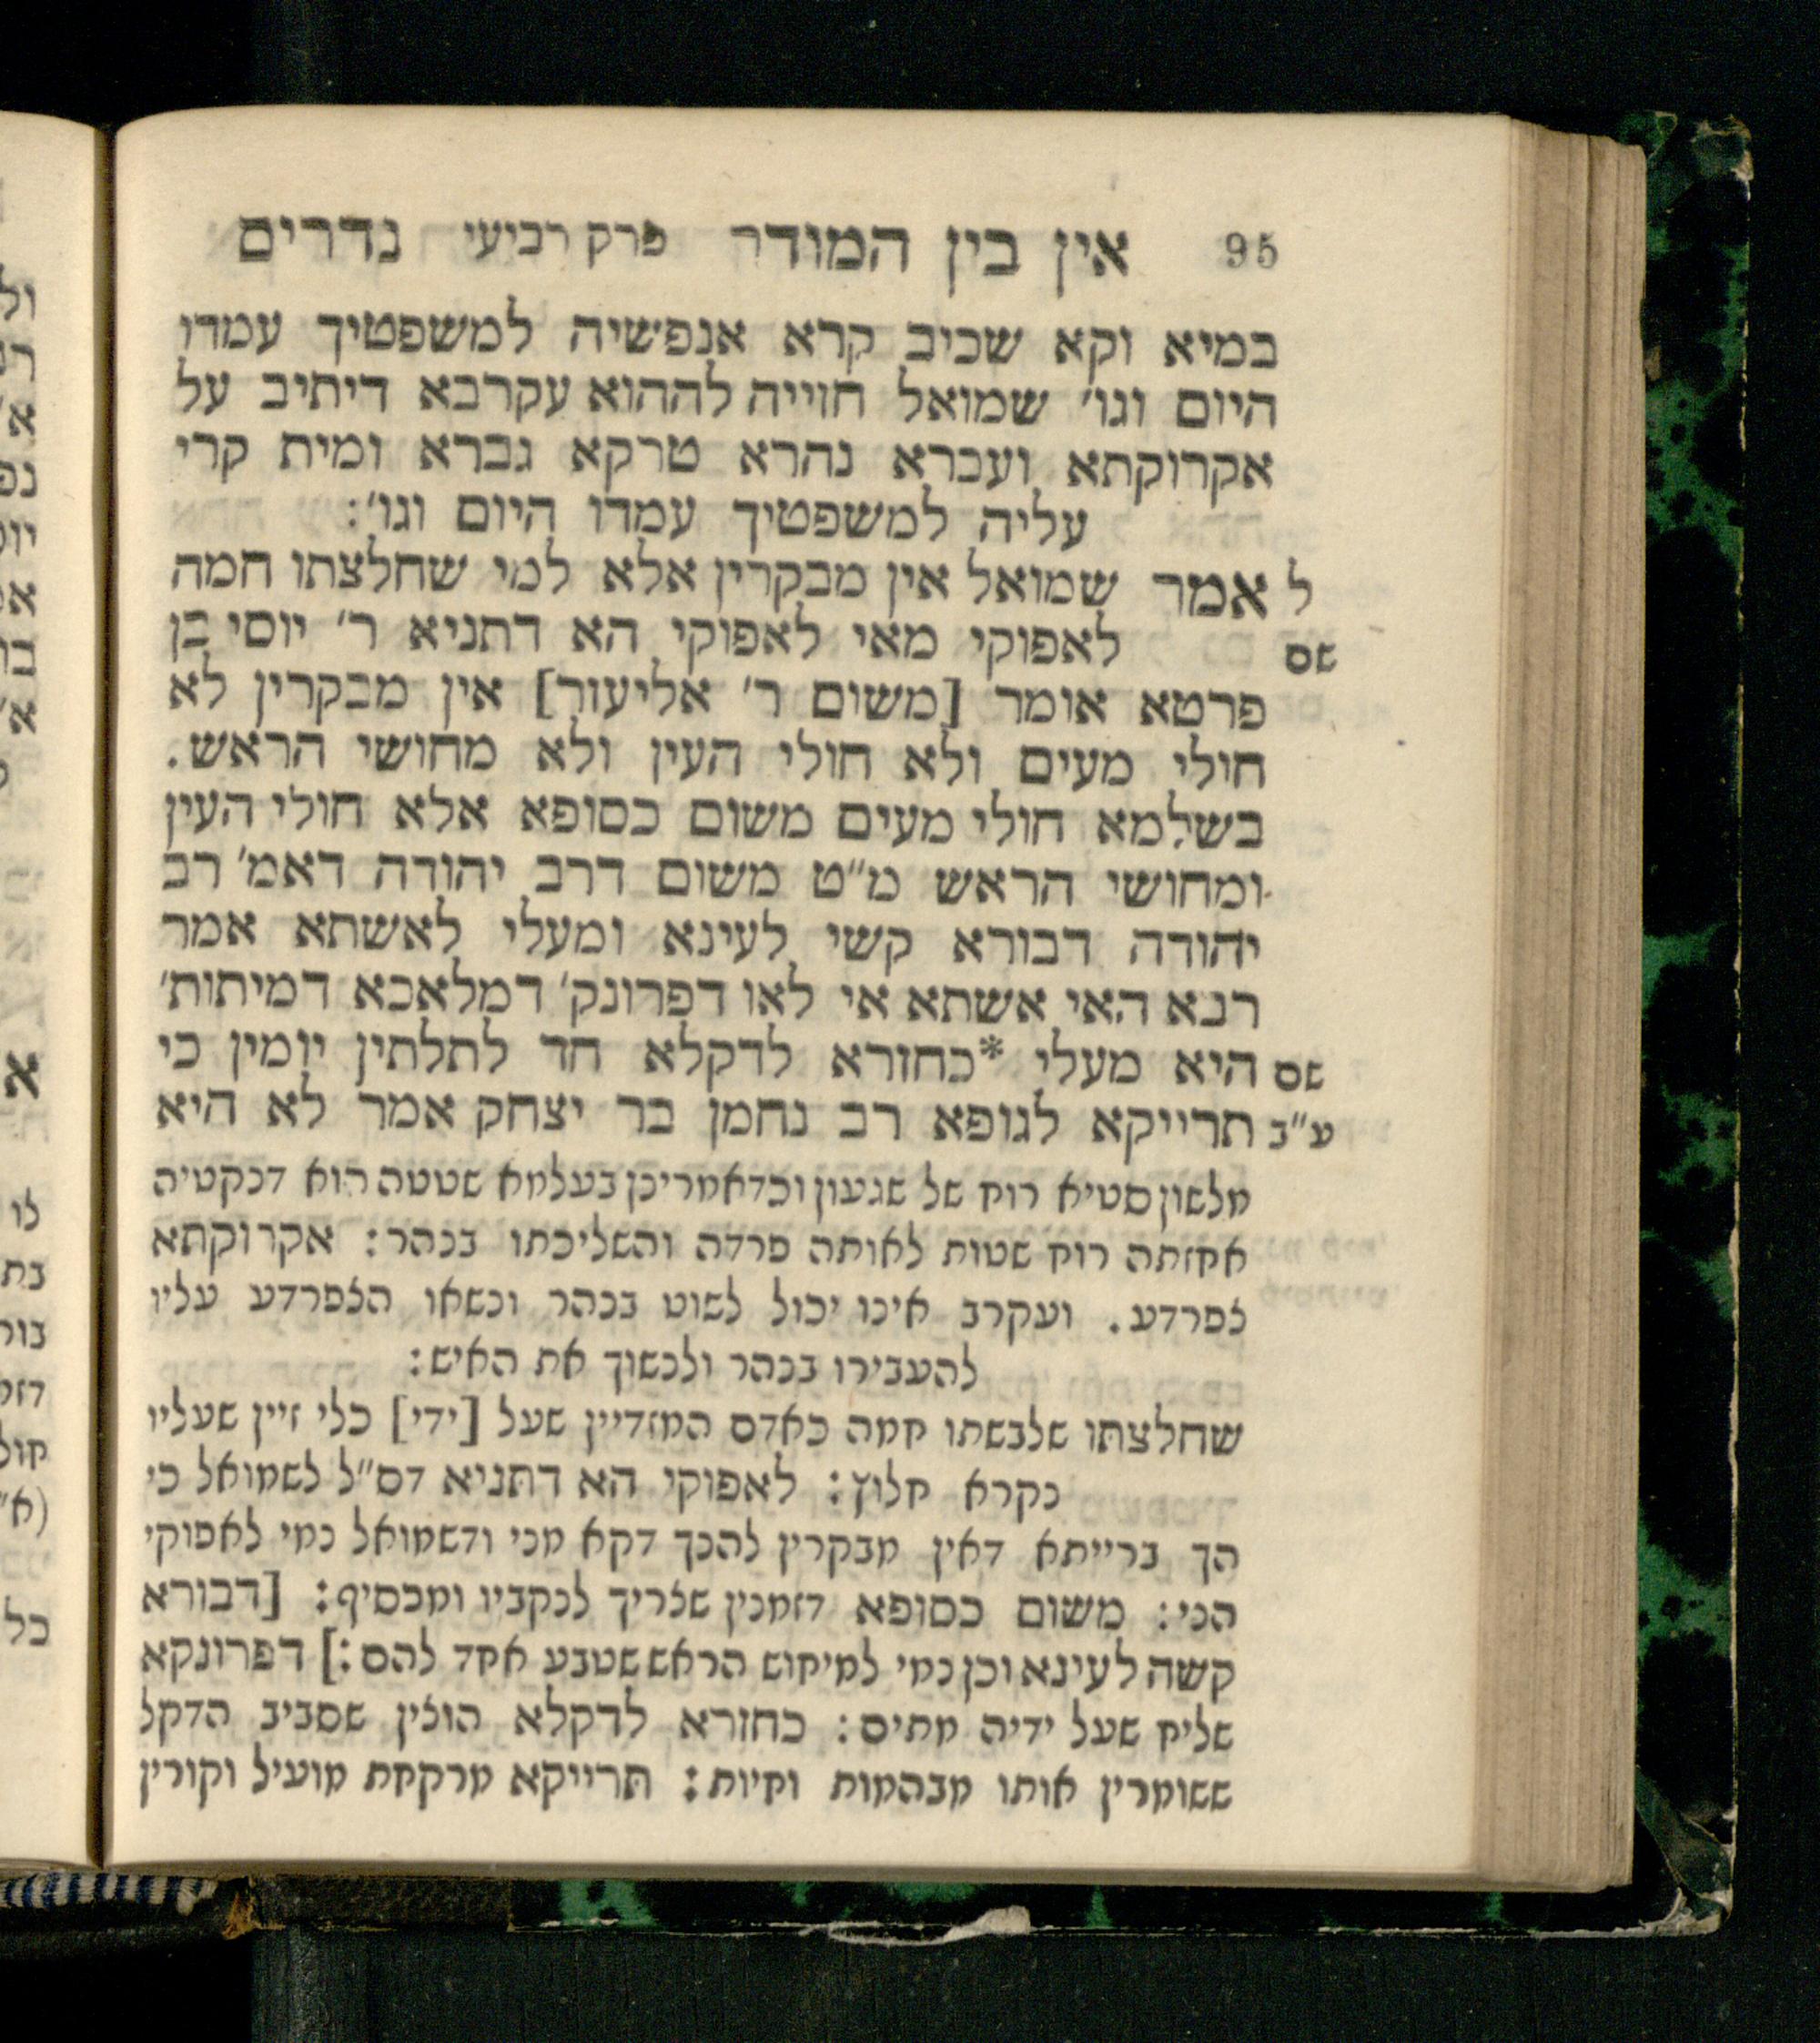 95 אין בין המודר פרק רביעי נדרים
במיא וקא שכיב קרא אנפשיה למשפטיך עמדו
היום וגו׳ שמואל חזייה לההוא עקרבא דיתיב על
אקרוקתא ועברא נהרא טרקא גברא ומית קרי
עליה למשפטיך עמדו היום וגו׳:
ל אמר שמואל אין מבקרין אלא למי שחלצתו חמה
שם לאפוקי מאי לאפוקי הא דתניא ר׳ יוסי בן
פרטא אומר [משום ר׳ אליעזר] אין מבקרין לא
חולי מעים ולא חולי העין ולא מחושי הראש.
בשלמא חולי מעים משום כסופא אלא חולי העין
ומחושי הראש מ״ט משום דרב יהודה דאמ׳ רב
יהודה דבורא קשי לעינא ומעלי לאשתא אמר
רבא האי אשתא אי לאו דפרונק׳ דמלאכא דמיתות׳
שם היא מעלי *כחזרא לדקלא חד לתלתין יומין כי
ע״ב תרייקא לגופא רב נחמן בר יצחק אמר לא היא
מלשון סטיא רוח של שגעון וכדאמרינן בעלמא שטטה הוא דנקטיה
אחזתה רוח שטות לאותה פרדה והשליכתו בנהר: אקרוקתא
צפרדע. ועקרב אינו יכול לשוט בנהר ונשאו הצפרדע עליו
להעבירו בנהר ולנשוך את האיש:
שחלצתו שלבשתו חמה כאדם המזדיין שעל [ידי] כלי זיין שעליו
נקרא חלוץ: לאפוקי הא דתניא דס״ל לשמואל כי
הך ברייתא דאין מבקרין להנך דקא מני ודשמואל נמי לאפוקי
הני: משום כסופא דזמנין שצריך לנקביו ומכסיף: [דבורא
קשה לעינא וכן נמי למיחוש הראש שטבע אחד להם:] דפרונקא
שליח שעל ידיה מתים: כחזרא לדקלא הוצין שסביב הדקל
ששומרין אותו מבהמות וחיות: תרייקא מרקחת מועיל וקורין